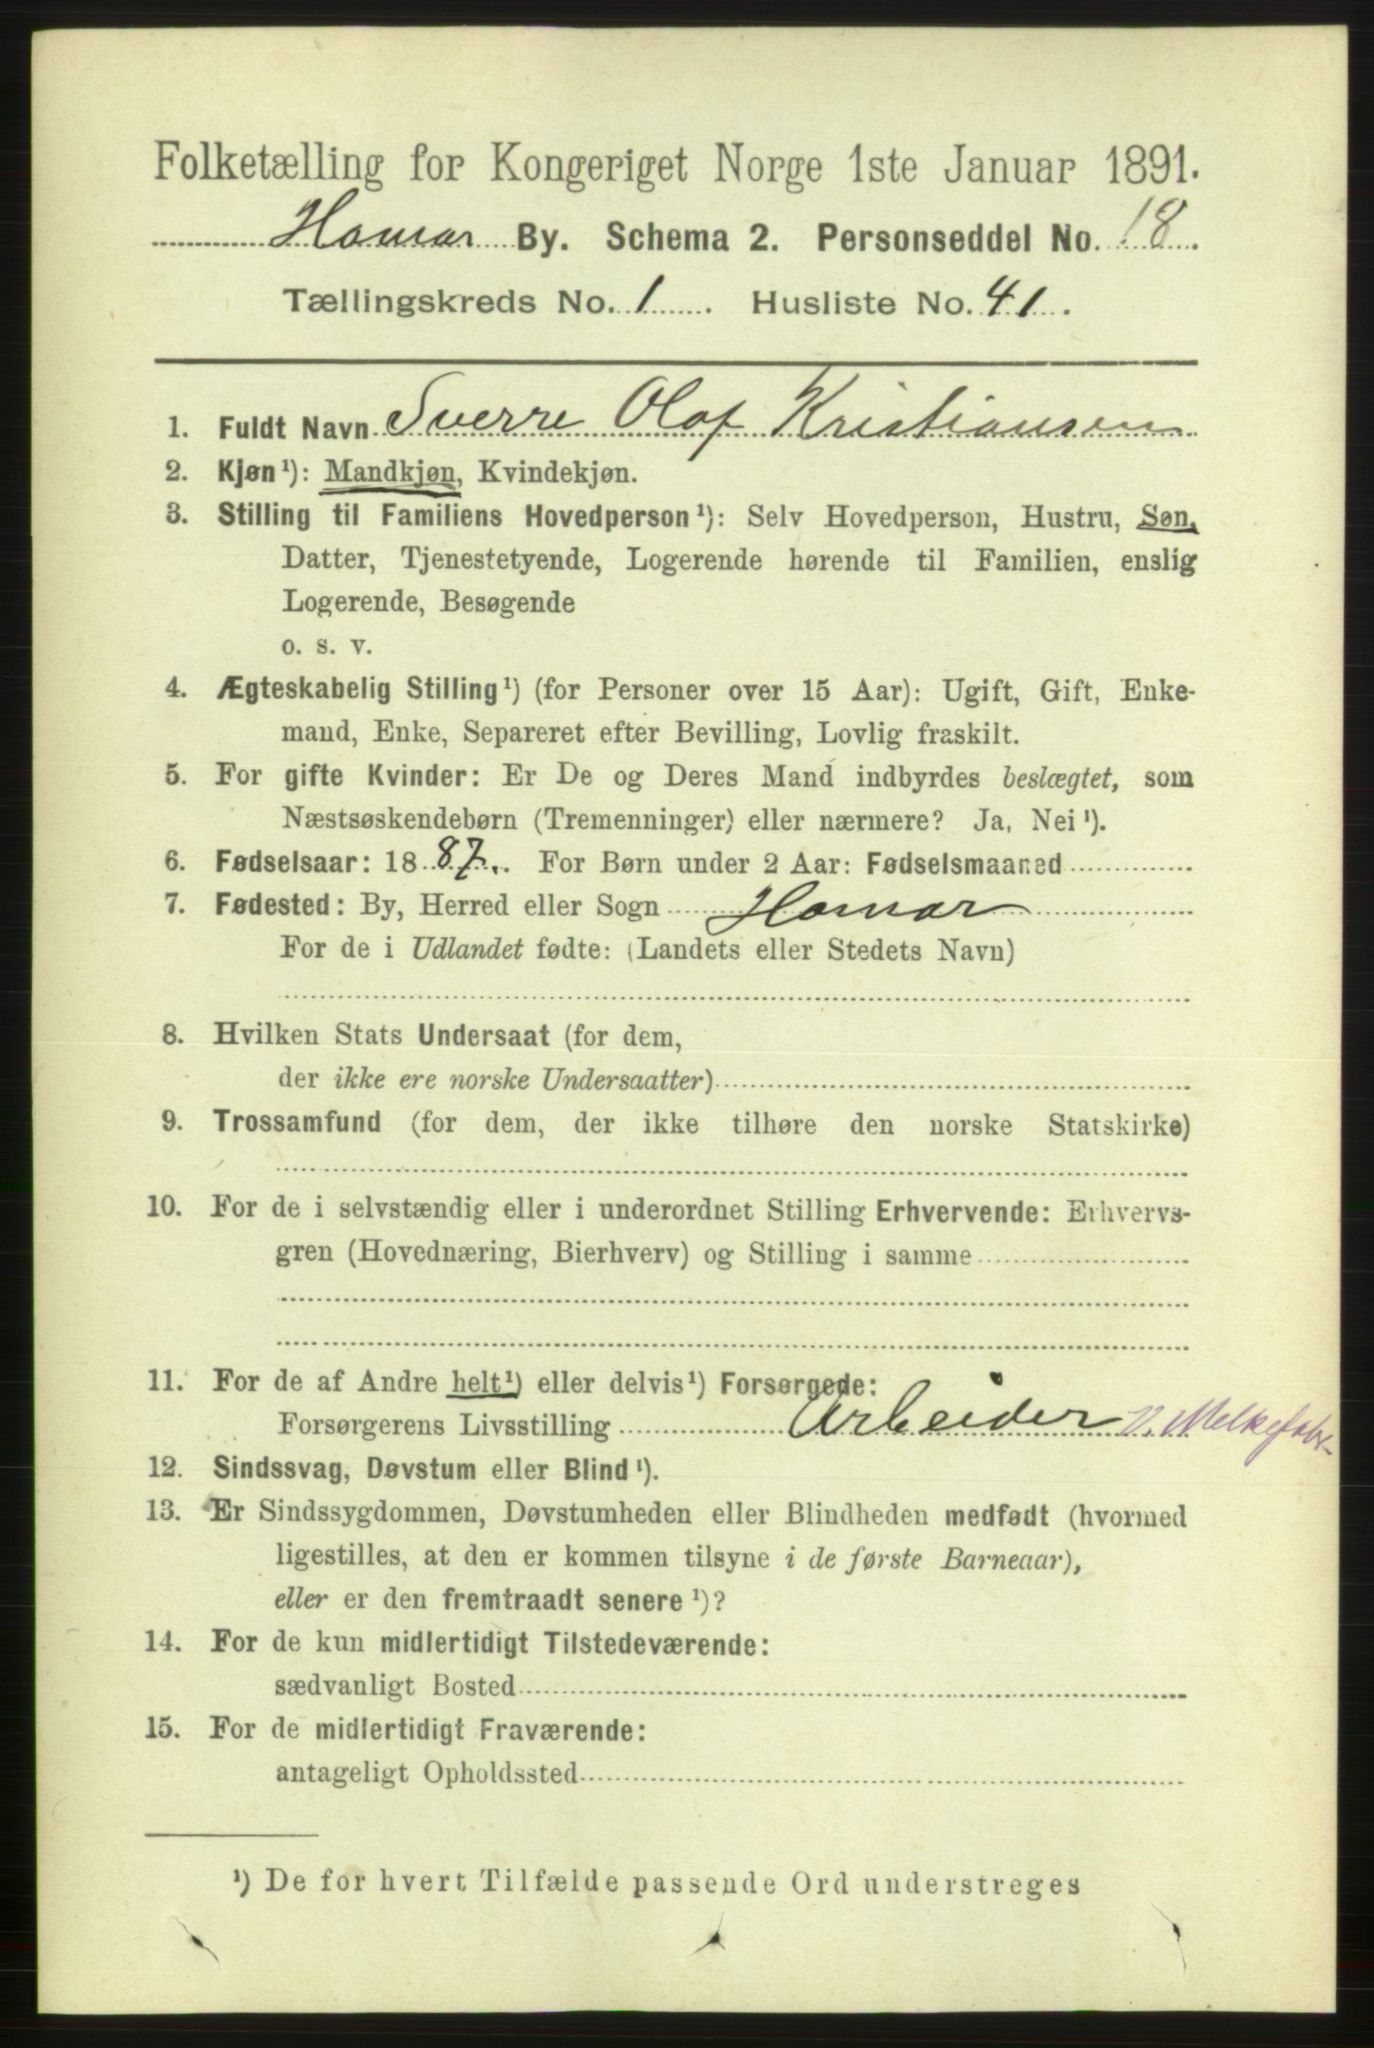 Folketælling for Kongeriget Norge 1ste Januar 1891.
Hamar By. Schema 2. Personseddel No. 18.
Tællingskreds No. 1. Husliste No. 41.
1. Fuldt Navn Sverre Olaf Kristiansen
2. Kjøn ¹): Mandkjøn, Kvindekjøn.
3. Stilling til Familiens Hovedperson ¹): Selv Hovedperson, Hustru, Søn,
Datter, Tjenestetyende, Logerende hørende til Familien, enslig
Logerende, Besøgende
o. s. v.
4. Ægteskabelig Stilling ¹) (for Personer over 15 Aar): Ugift, Gift, Enke-
mand, Enke, Separeret efter Bevilling, Lovlig fraskilt.
5. For gifte Kvinder: Er De og Deres Mand indbyrdes beslægtet, som
Næstsøskendebørn (Tremenninger) eller nærmere? Ja, Nei ¹).
6. Fødselsaar: 1887. For Børn under 2 Aar: Fødselsmaaned
7. Fødested: By, Herred eller Sogn Hamar
For de i Udlandet fødte: (Landets eller Stedets Navn)
8. Hvilken Stats Undersaat (for dem,
der ikke ere norske Undersaatter)
9. Trossamfund (for dem, der ikke tilhøre den norske Statskirke)
10. For de i selvstændig eller i underordnet Stilling Erhvervende: Erhvervs-
gren (Hovednæring, Bierhverv) og Stilling i samme
11. For de af Andre helt ¹) eller delvis ¹) Forsørgede:
Forsørgerens Livsstilling Arbeider v. Melkefabr.
12. Sindssvag, Døvstum eller Blind ¹).
13. Er Sindssygdommen, Døvstumheden eller Blindheden medfødt (hvormed
ligestilles, at den er kommen tilsyne i de første Barneaar),
eller er den fremtraadt senere ¹)?
14. For de kun midlertidigt Tilstedeværende:
sædvanligt Bosted
15. For de midlertidigt Fraværende:
antageligt Opholdssted
¹) De for hvert Tilfælde passende Ord understreges